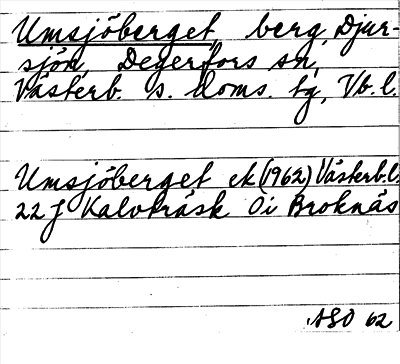 Umsjöberget, berg, Djur-
sjön, Degerfors sn,
Västerb. s. doms. tg, Vb. l.
Umsjöberget ek (1962) Västerb. l.
22 J Kalvträsk 0i Broknäs
ASO 62